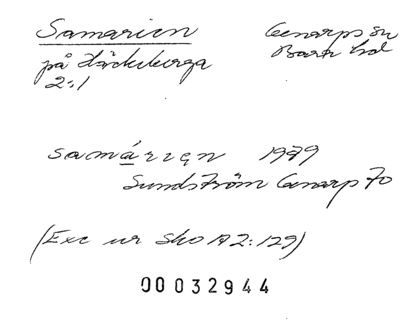 Samarien Genarps sn
på Häckeberga Bara hd
2:1
samárịẹn 1979
Sundström Genarp 70
(Exc ur Sko A2:129)
00032944